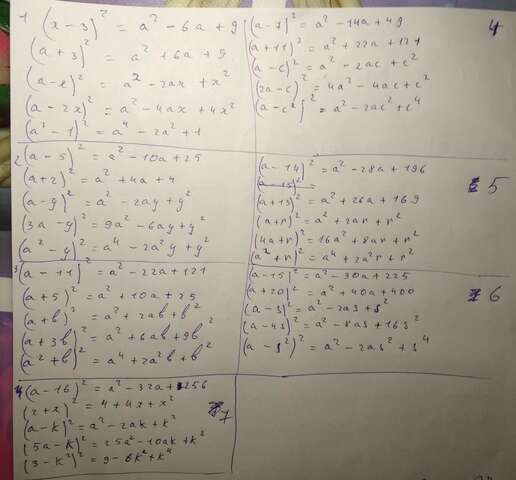 1 (x-3)² = a² - 6a + 9
(a+3)² = a² + 6a + 9
(a-x)² = a² - 2ax + x²
(a-2x)² = a² - 4ax + 4x²
(a²-1)² = a⁴ - 2a² + 1
4
(a-7)² = a² - 14a + 49
(a+11)² = a² + 22a + 121
(a-c)² = a² - 2ac + c²
(2a-c)² = 4a² - 4ac + c²
(a-c²)² = a² - 2ac² + c⁴
2 (a-5)² = a² - 10a + 25
(a+2)² = a² + 4a + 4
(a-y)² = a² - 2ay + y²
(3a-y)² = 9a² - 6ay + y²
(a²-y)² = a⁴ - 2a²y + y²
5
(a-14)² = a² - 28a + 196
(a-15)² =
(a+13)² = a² + 26a + 169
(a+r)² = a² + 2ar + r²
(4a+r)² = 16a² + 8ar + r²
(a²+r)² = a⁴ + 2a²r + r²
3 (a-11)² = a² - 22a + 121
(a+5)² = a² + 10a + 25
(a+b)² = a² + 2ab + b²
(a+3b)² = a² + 6ab + 9b²
(a²+b)² = a⁴ + 2a²b + b²
6
(a-15)² = a² - 30a + 225
(a+20)² = a² + 40a + 400
(a-s)² = a² - 2as + s²
(a-4s)² = a² - 8as + 16s²
(a-s²)² = a² - 2as² + s⁴
4 (a-16)² = a² - 32a + 256
7
(2+x)² = 4 + 4x + x²
(a-k)² = a² - 2ak + k²
(5a-k)² = 25a² - 10ak + k²
(3-k²)² = 9 - 6k² + k⁴